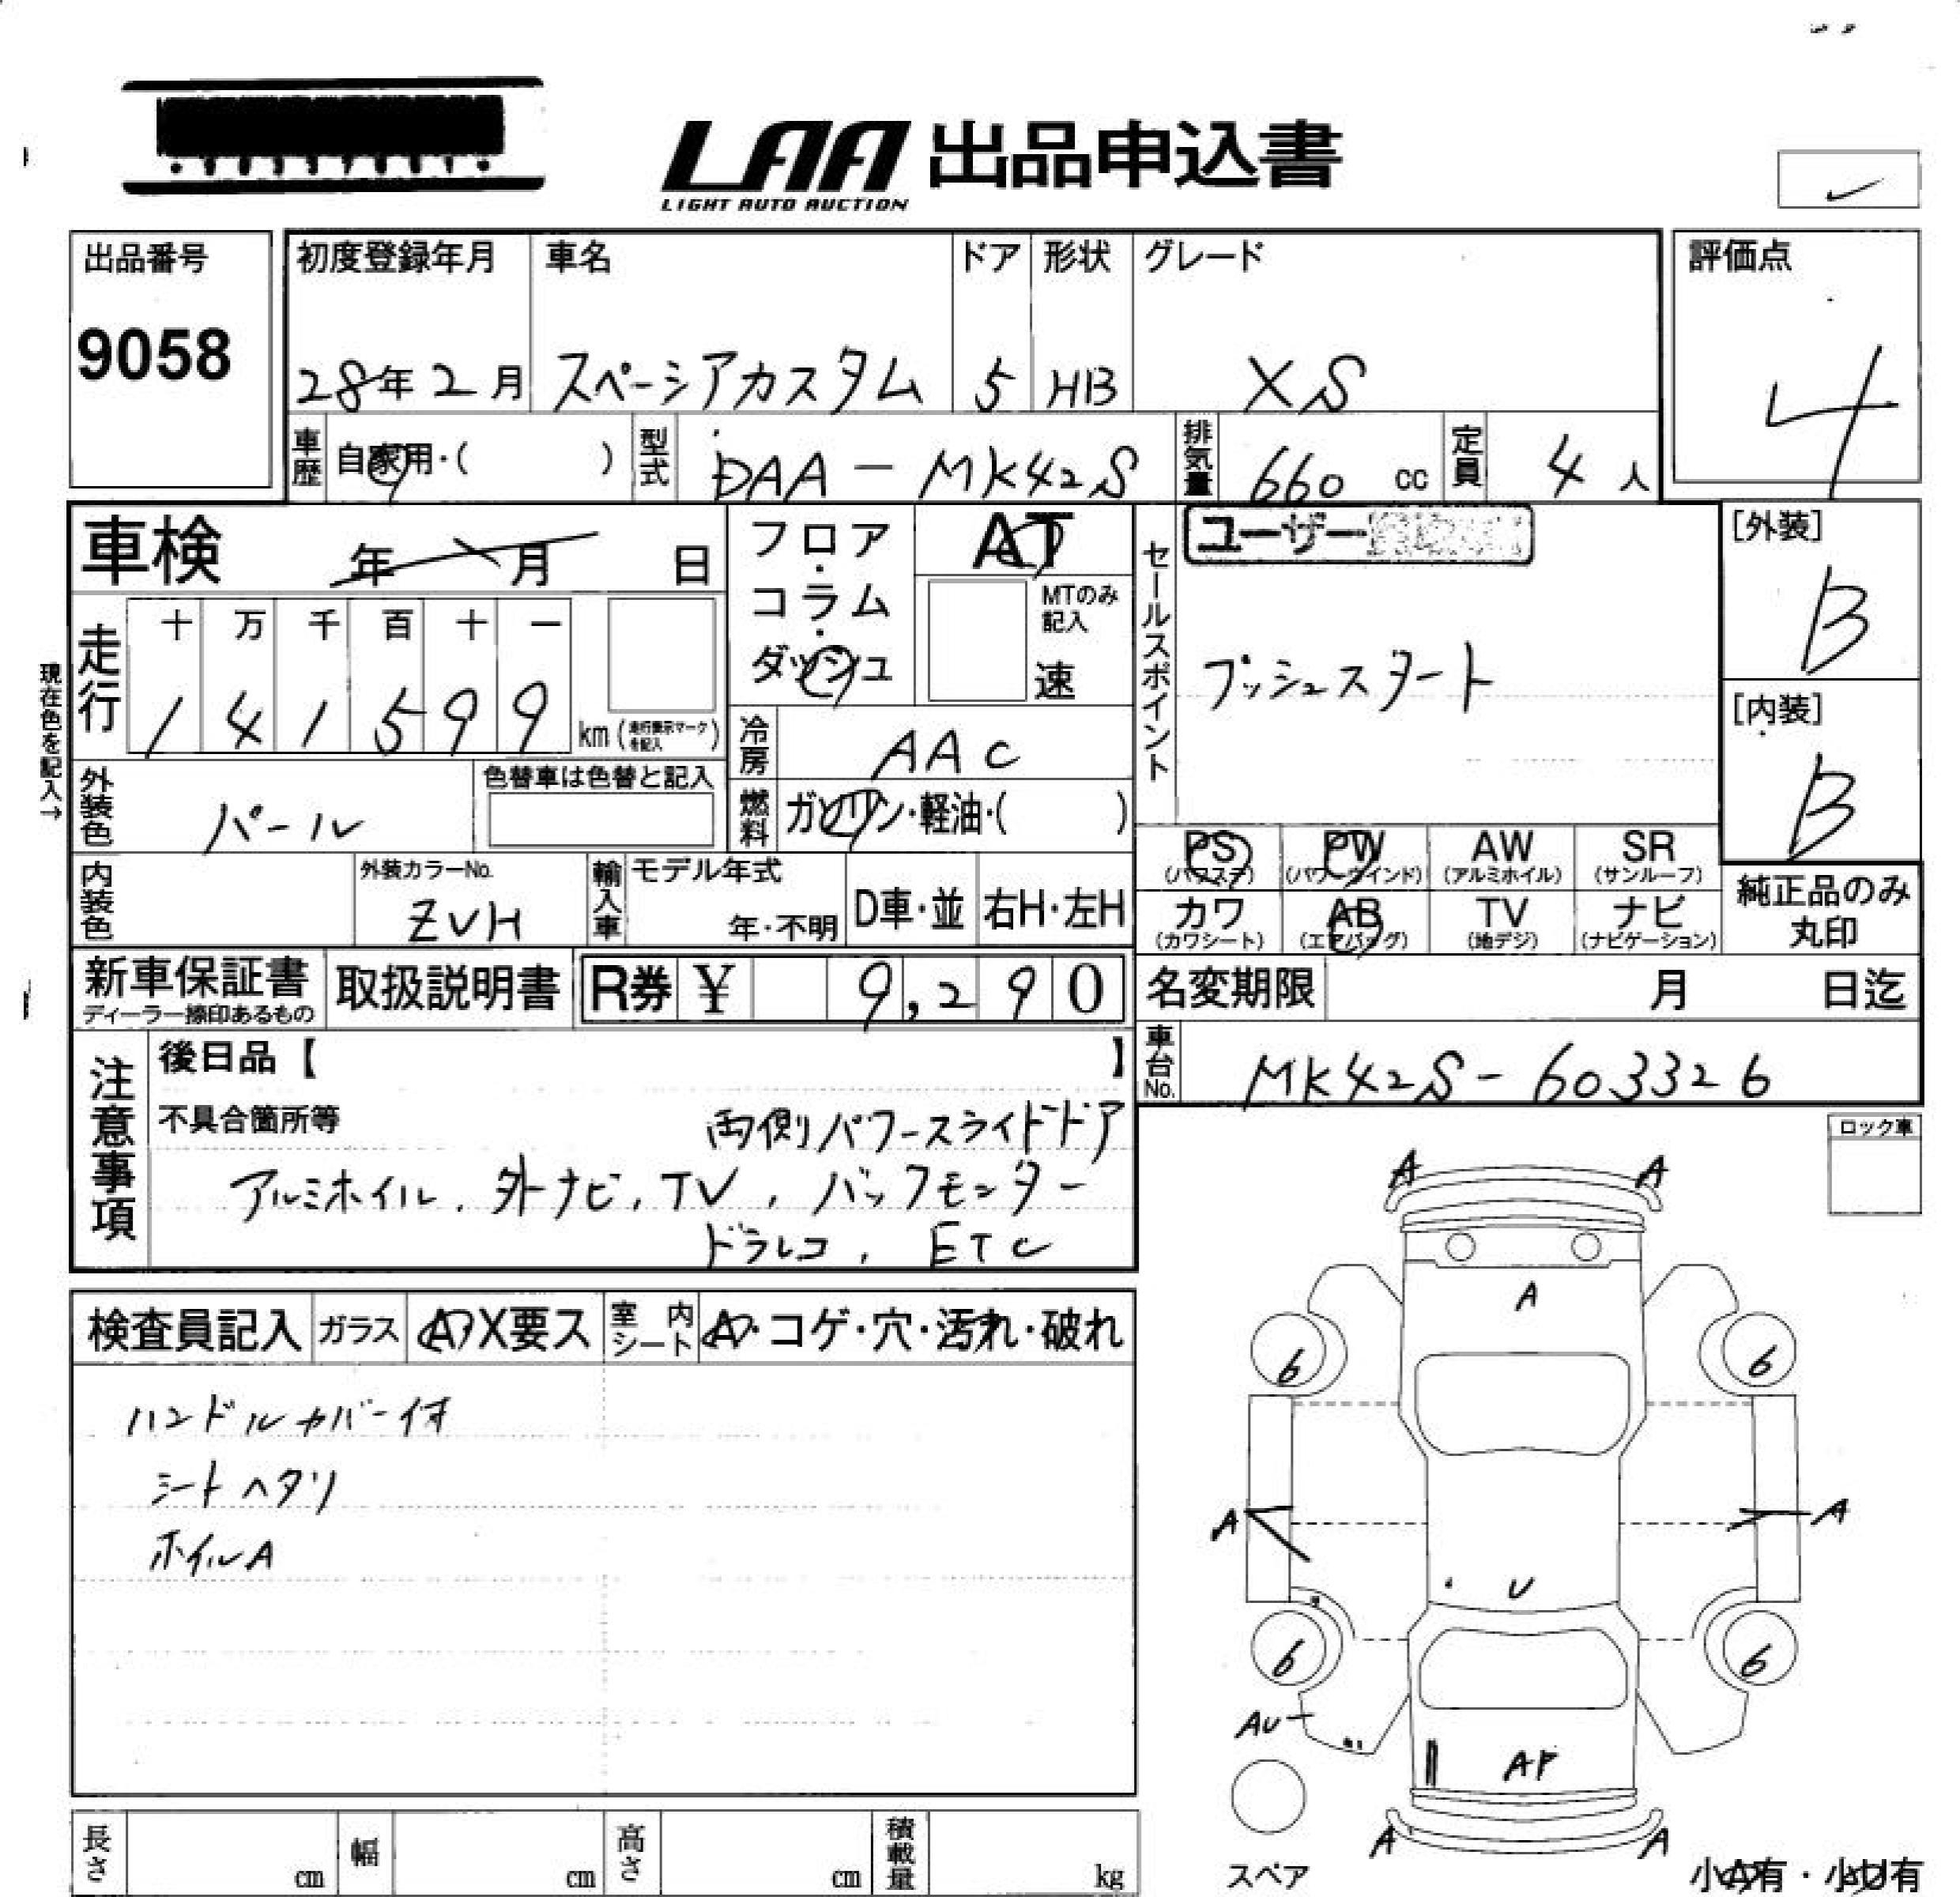 LAA 出品申込書
LIGHT AUTO AUCTION
出品番号
9058
初度登録年月
28年2月
車名
スペーシアカスタム
ドア
5
形状
HB
グレード
XS
評価点
4
車歴
自家用・( )
型式
DAA-MK42S
排気量
660 cc
定員
4人
車検
年 月 日
フロア・コラム・ダッシュ
AT
MTのみ記入
速
セールスポイント
ユーザー
プッシュスタート
[外装]
B
[内装]
B
現在色を記入→
走行
十 万 千 百 十 一
1 4 1 5 9 9
km (走行表示マークを記入)
冷房
AAC
外装色
パール
色替車は色替と記入
燃料
ガソリン・軽油・( )
PS
(パワステ)
PW
(パワーウインド)
AW
(アルミホイル)
SR
(サンルーフ)
カワ
(カワシート)
AB
(エアバッグ)
TV
(地デジ)
ナビ
(ナビゲーション)
純正品のみ
丸印
内装色
外装カラーNo.
ZVH
輸入車
モデル年式
年・不明
D車・並
右H・左H
新車保証書
ディーラー捺印あるもの
取扱説明書
R券 ¥ 9,290
名変期限
月 日迄
車台No.
MK42S-603326
注意事項
後日品【 】
不具合箇所等
両側パワースライドドア
アルミホイル、外ナビ、TV、バックモニター
ドラレコ、ETC
ロック車
検査員記入
ガラス
A・X要ス
室内シート
A・コゲ・穴・汚れ・破れ
ハンドルカバー付
シートヘタリ
ホイルA
A A
A
6 6
A A
U
6 6
AU
AP
A A
スペア
小A有・小U有
長さ cm
幅 cm
高さ cm
積載量 kg